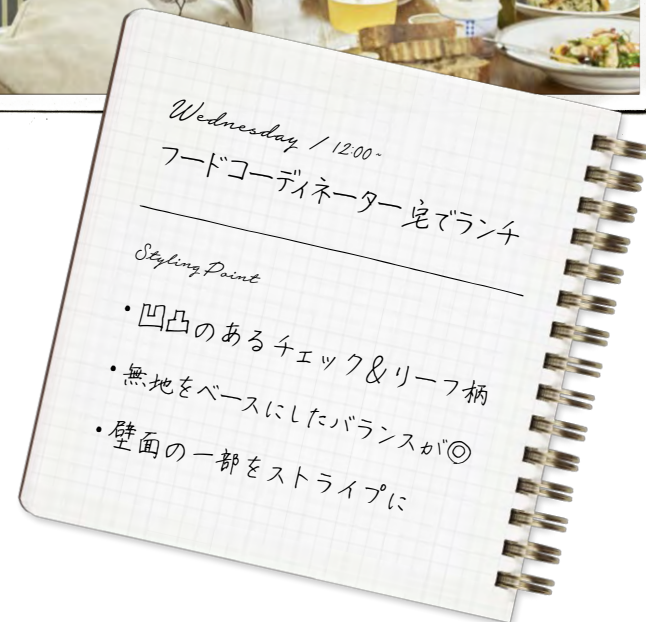 Wednesday / 12:00~
フードコーディネーター宅でランチ
Styling Point
・凹凸のあるチェック&リーフ柄
・無地をベースにしたバランスが◎
・壁面の一部をストライプに